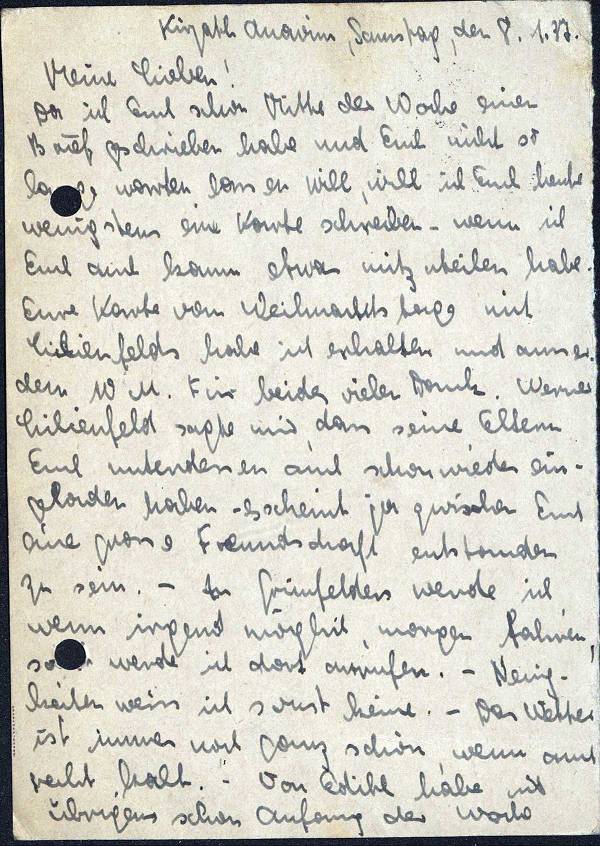 Kirjath Anavim, Samstag, den 8. 1. 37.
Meine Lieben!
Da ich Euch schon Mitte der Woche einen
Brief geschrieben habe und Euch nicht so
lange warten lassen will, will ich Euch heute
wenigstens eine Karte schreiben – wenn ich
Euch auch kaum etwas mitzuteilen habe.
Eure Karte vom Weihnachtstage mit
Lilienfelds habe ich erhalten und ausser-
dem 10 M. Für beides vielen Dank. Werner
Lilienfeld sagte mir, dass seine Eltern
Euch unterdessen auch schon wieder ein-
geladen haben – es scheint ja zwischen Euch
eine grosse Freundschaft entstanden
zu sein. – Zu Grünfelders werde ich
wenn irgend möglich, morgen fahren,
werde ich dort anrufen. – Neuig-
keiten weiss ich sonst keine. – Das Wetter
ist immer noch ganz schön, wenn auch
recht kalt. – Von Edith habe ich
übrigens schon Anfang der Woche